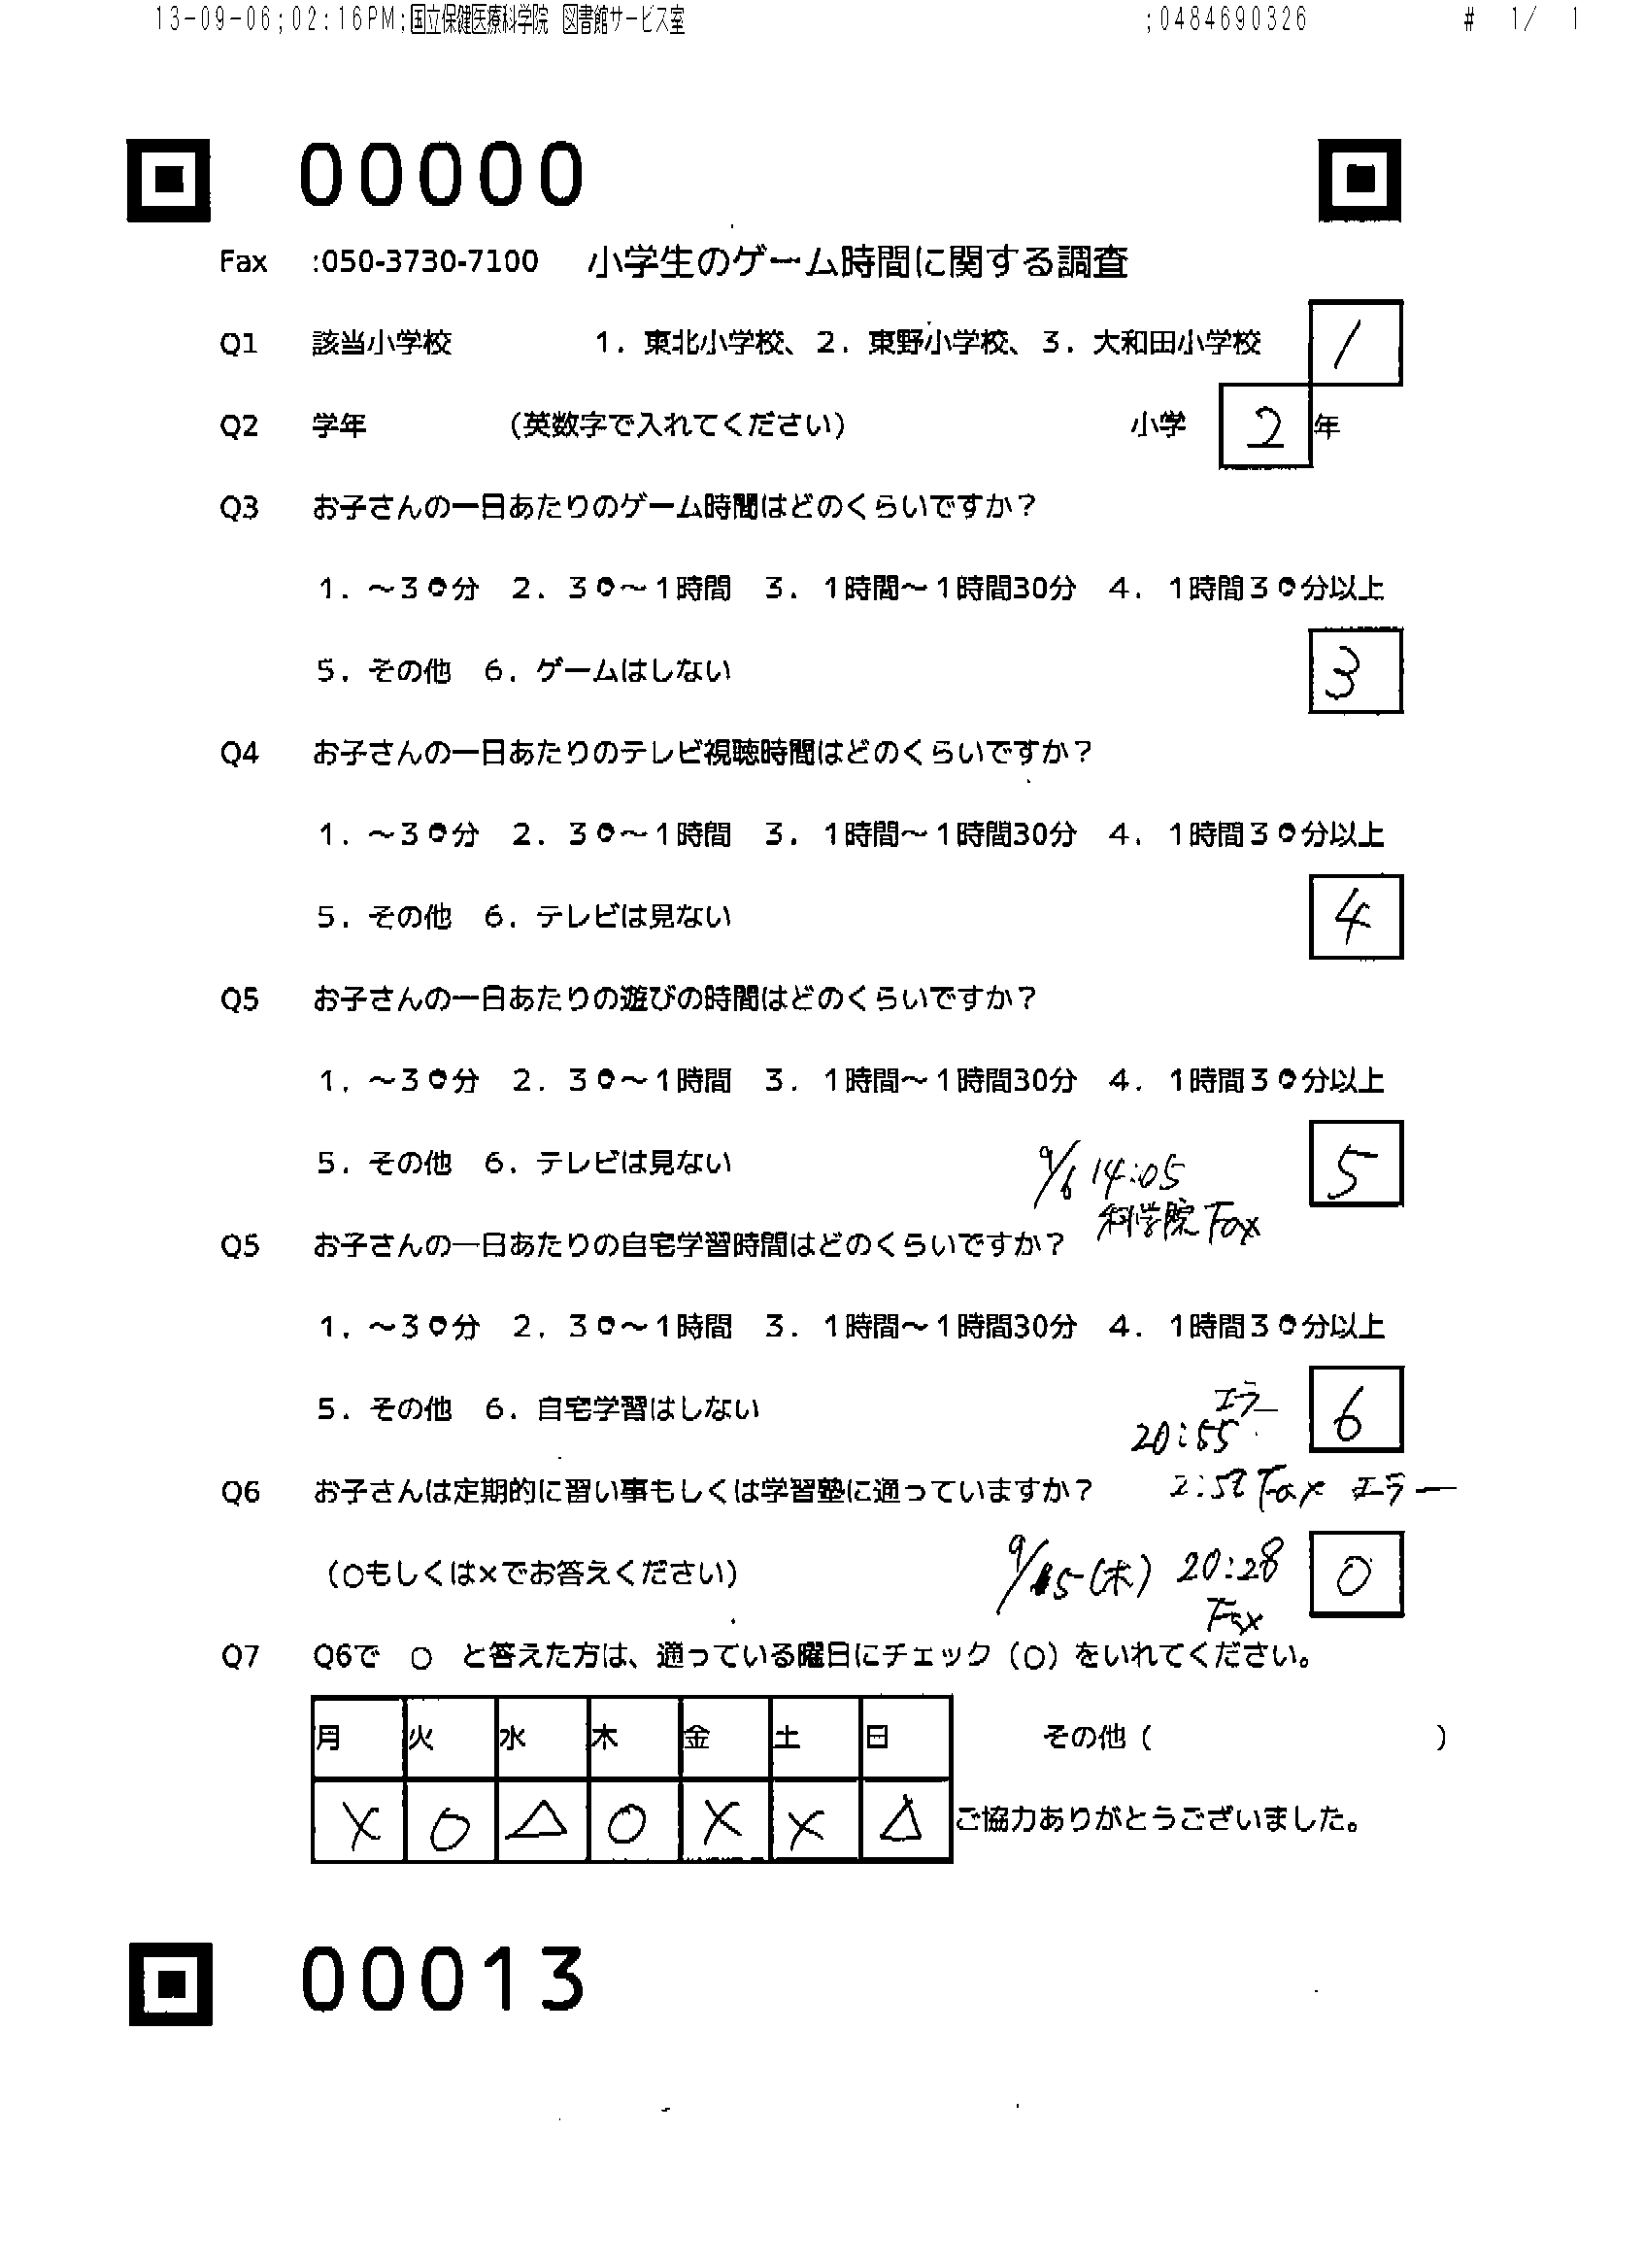 13-09-06;02:16PM;国立保健医療科学院 図書館サービス室 ;0484690326 # 1/ 1
00000
Fax :050-3730-7100 小学生のゲーム時間に関する調査
Q1 該当小学校 1．東北小学校、2．東野小学校、3．大和田小学校 1
Q2 学年 （英数字で入れてください） 小学 2 年
Q3 お子さんの一日あたりのゲーム時間はどのくらいですか？
1．～30分 2．30～1時間 3．1時間～1時間30分 4．1時間30分以上
5．その他 6．ゲームはしない 3
Q4 お子さんの一日あたりのテレビ視聴時間はどのくらいですか？
1．～30分 2．30～1時間 3．1時間～1時間30分 4．1時間30分以上
5．その他 6．テレビは見ない 4
Q5 お子さんの一日あたりの遊びの時間はどのくらいですか？
1．～30分 2．30～1時間 3．1時間～1時間30分 4．1時間30分以上
5．その他 6．テレビは見ない 9/6 14:05 5
科学院 Fax
Q5 お子さんの一日あたりの自宅学習時間はどのくらいですか？
1．～30分 2．30～1時間 3．1時間～1時間30分 4．1時間30分以上
エラー
5．その他 6．自宅学習はしない 20:55 6
Q6 お子さんは定期的に習い事もしくは学習塾に通っていますか？ Fax エラー
（○もしくは×でお答えください） 9/5(木) 20:28 ○
Fax
Q7 Q6で ○ と答えた方は、通っている曜日にチェック（○）をいれてください。
月 火 水 木 金 土 日 その他（ ）
× ○ △ ○ × × △ ご協力ありがとうございました。
00013